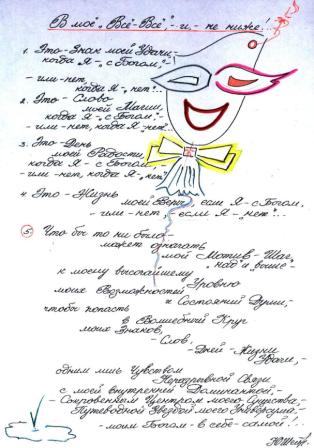 В моё „Всё-Всё",- и,- не ниже...
1. Это-Знак моей Удачи,-
когда Я-„с Богом,"-
- или-нет,
когда Я-„нет"...
2. Это-Слово
моей Магии,
когда Я-„с Богом,"-
- или-нет, когда Я-„нет"...
3. Это-День
моей Радости,
когда Я-с Богом,-
- или-нет, когда Я-„нет"
4. Это-Жизнь
моей Веры, если Я-с Богом,
- или-нет,-если Я-„нет"...
5. Что бы то ни было,-
может означать
мой Мотив-Шаг,
„над и выше"-
к моему высочайшему
Уровню
моих Возможностей
и Состояний Души,-
чтобы попасть
в Волшебный Круг
моих Знаков,
-Слов,
-Дней-Жизни
Удачи,-
одним лишь Чувством
Неразрывной Связи
с моей внутренней Доминантой,-
- Сокровенным Центром моего Существа,
- Путеводной Звездой моего Универсума,-
- моим Богом-в себе-самой!...